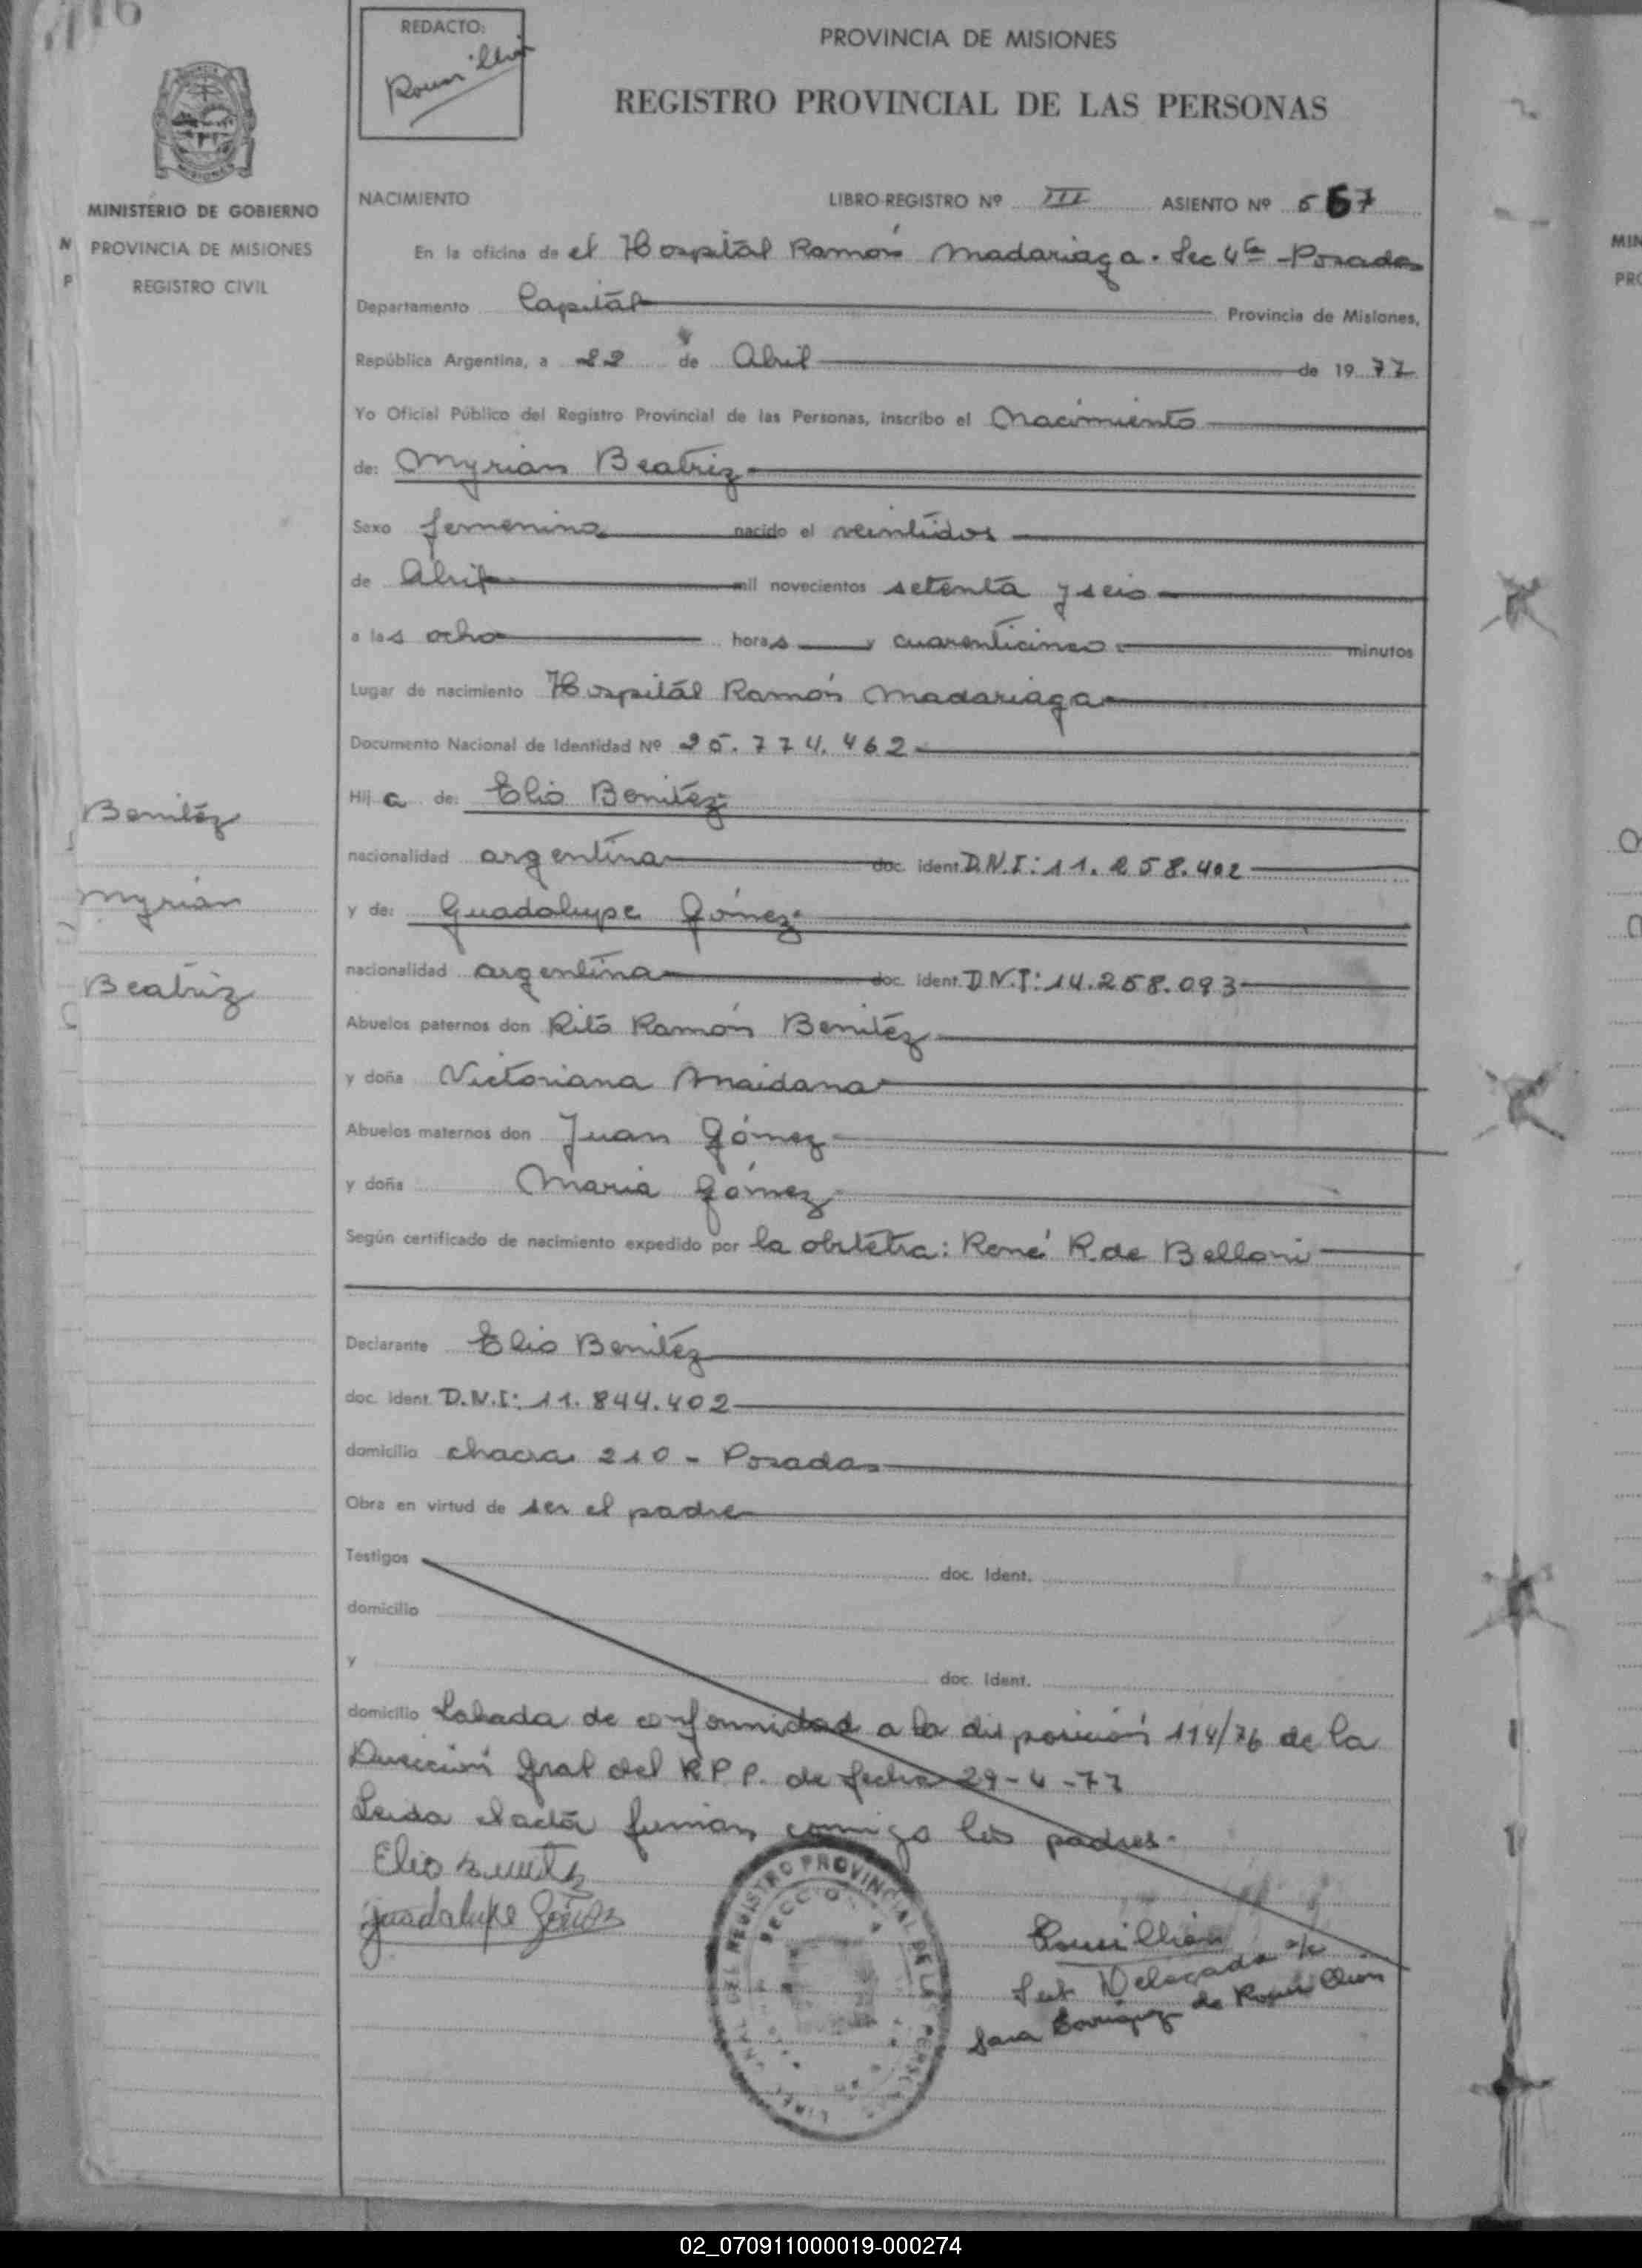 REDACTO:
PROVINCIA DE MISIONES
REGISTRO PROVINCIAL DE LAS PERSONAS
MINISTERIO DE GOBIERNO
PROVINCIA DE MISIONES
REGISTRO CIVIL
NACIMIENTO LIBRO REGISTRO Nº III ASIENTO Nº 567
En la oficina de el Hospital Ramón Madariaga. Sec 4ta - Posadas
Departamento Capital Provincia de Misiones,
República Argentina, a 22 de Abril de 1977
Yo Oficial Público del Registro Provincial de las Personas, inscribo el Nacimiento
de: Myrian Beatriz
Sexo femenino nacido el veintidos
de Abril mil novecientos setenta y seis
a las ocho horas y cuarenticinco minutos
Lugar de nacimiento Hospital Ramón Madariaga
Documento Nacional de Identidad Nº 25.774.462
Hij a de: Elio Benitez
nacionalidad argentina doc. ident. D.N.I: 11.258.402
y de: Guadalupe Gómez
nacionalidad argentina doc. ident. D.N.I: 14.258.093
Abuelos paternos don Rito Ramón Benitez
y doña Victoriana Maidana
Abuelos maternos don Juan Gómez
y doña Maria Gómez
Según certificado de nacimiento expedido por la obstetra: René R. de Belloni
Declarante Elio Benitez
doc. ident. D.N.I: 11.844.402
domicilio chacra 210 - Posadas
Obra en virtud de ser el padre
Testigos doc. ident.
domicilio
y doc. ident.
domicilio Labrada de conformidad a la disposición 114/76 de la
Dirección Gral del R.P.P. de fecha 29-4-77
Leida el acta firman conmigo los padres.
Elio Benitez
Guadalupe Gómez
Sub Delegada a/c
Sara
Benitez
Myrian
Beatriz
REGISTRO PROVINCIAL DE LAS PERSONAS
02_070911000019-000274